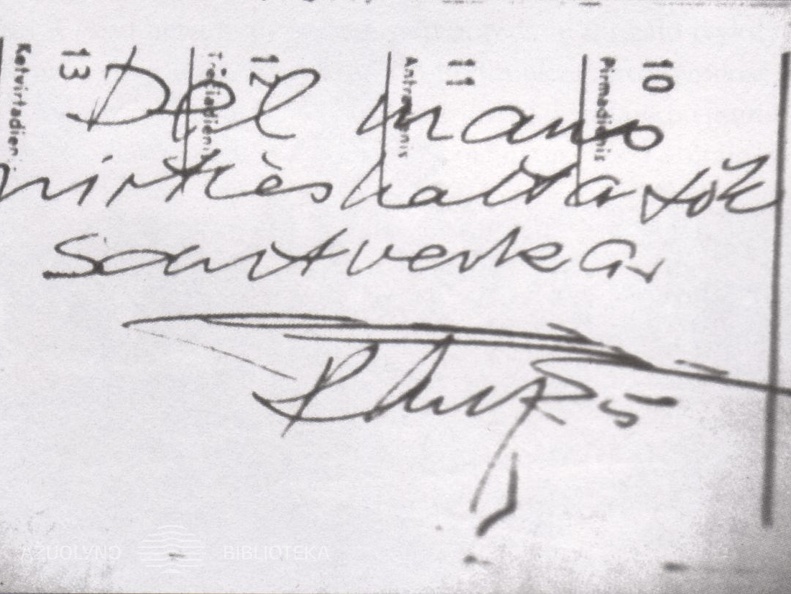 13 12 11 10
Ketvirtadien Trečiadienis Antradienis Pirmadienis
Dėl mano
mirties kalta tik
santvarka
ĄŽUOLYNO BIBLIOTEKA